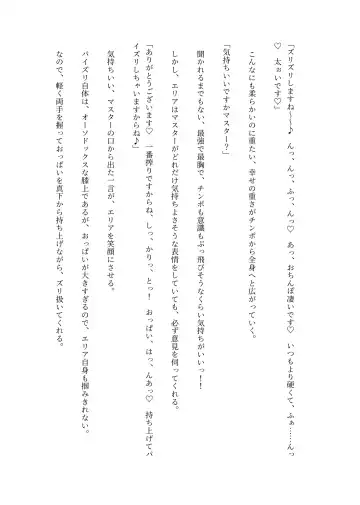 「ズリズリしますね～～♪　んっ、んっ、ふっ、んっ♡　あっ、おちんぽ凄いです♡　いつもより硬くて、ふぁ……んっ
♡　太ぉいです♡」
こんなにも柔らかいのに重たい、幸せの重さがチンポから全身へと広がっていく。
「気持ちいいですかマスター？」
聞かれるまでもない、最強で最胸で、チンポも意識もぶっ飛びそうなくらい気持ちがいいっ！
しかし、エリアはマスターがどれだけ気持ちよさそうな表情をしていても、必ず意見を伺ってくれる。
「ありがとうございます♡　一番搾りですからね、しっ、かりっ、とっ！　おっぱい、はっ、んあっ♡　持ち上げてパ
イズリしちゃいますからね♪」
気持ちいい、マスターの口から出た一言が、エリアを笑顔にさせる。
パイズリ自体は、オーソドックスな膝上であるが、おっぱいが大きすぎるので、エリア自身も掴みきれない。
なので、軽く両手を握っておっぱいを真下から持ち上げながら、ズリ扱いてくれる。